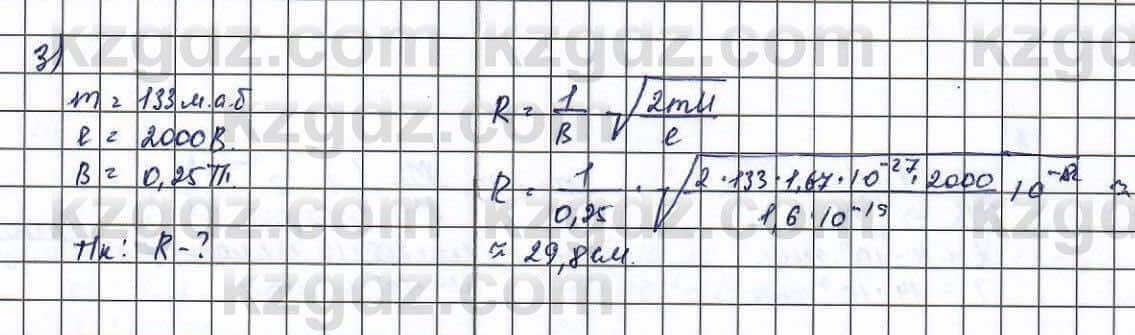 3)
m = 133 м.а.б
e = 2000 В.
B = 0,25 Тл.
Тк: R - ?
R = 1/B · √(2mU/e)
R = 1/0,25 · √(2·133·1,67·10⁻²⁷·2000/1,6·10⁻¹⁹ · 10
≈ 29,8 см.
kzgdz.com